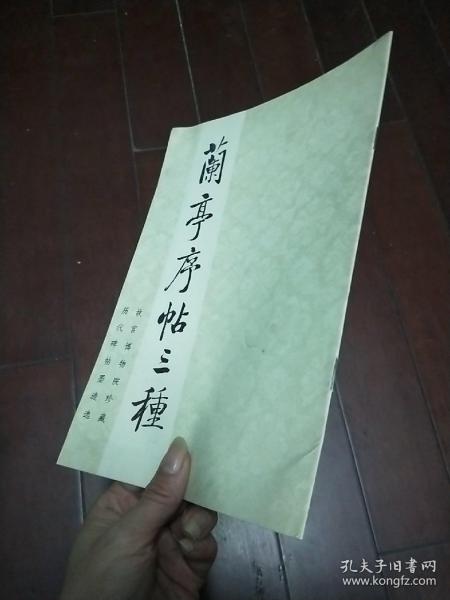 蘭亭序帖三種
故宫博物院珍藏
历代碑帖墨迹选
孔夫子旧书网
www.kongfz.com